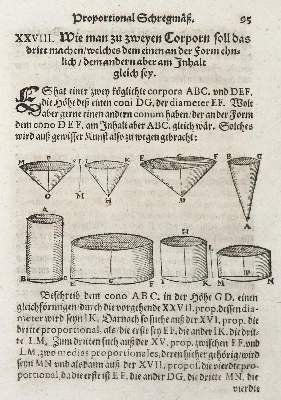 Proportional Schregmäß. 95
XXVIII. Wie man zu zweyen Corporn soll das
dritt machen/ welches dem einen an der Form ehn-
lich/ dem andern aber am Inhalt
gleich sey.
ES hat einer zwey kögliche corpora ABC. vnd DEF.
die Höhe deß einen coni DG, der diameter EF. Wolt
aber gerne einen andern conum haben/ der an der Form
dem cono DEF, am Inhalt aber ABC. gleich wär. Solches
wird auß gewisser Kunst also zu wegen gebracht:
B C D I H L E F B C
A M G N A
B C E F H I
A D M N
Beschreib dem cono ABC. in der Höhe GD, einen
gleichförmigen/ durch die vorgehende XXVII. prop. dessen dia-
meter wird seyn IK. Darnach so suche auß der XVI. prop. die
dritte proportional, als/ die erst sey EF, die ander IK, die drit-
te LM. Zum dritten such auß der XV. prop. zwischen EF. vnd
LM, zwo medias proportionales, deren hieher gehörig/ wird
seyn MN vnd als dann auß der XVIII. propos. die vierdte pro-
portional, da die erste ist EF, die ander DG, die dritte MN, die
vierdte